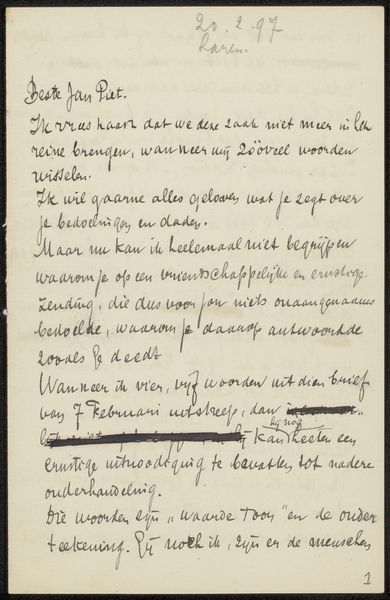 20.2.97
Laren.
Beste Jan Piet.
Ik vrees haast dat we deze zaak niet meer in het
reine brengen, wanneer wij zóóveel woorden
wisselen.
Ik wil gaarne alles gelooven wat je zegt over
je bedoelingen en daden.
Maar nu kan ik heelemaal niet begrijpen
waarom je op een vriendschappelijke en ernstige
zending, die dus voor jou niets onaangenaams
bedoelde, waarom je daarop antwoordde
zooals je deedt
Wanneer ik vier, vijf woorden uit dien brief
van 7 Februari uitstreep, dan
hij nog
kan heeten een
ernstige uitnoodiging te bevatten tot nadere
onderhandeling.
Die woorden zijn „waarde Toon" en de onder
teekening. Gij noch ik, zijn er de menschen
1